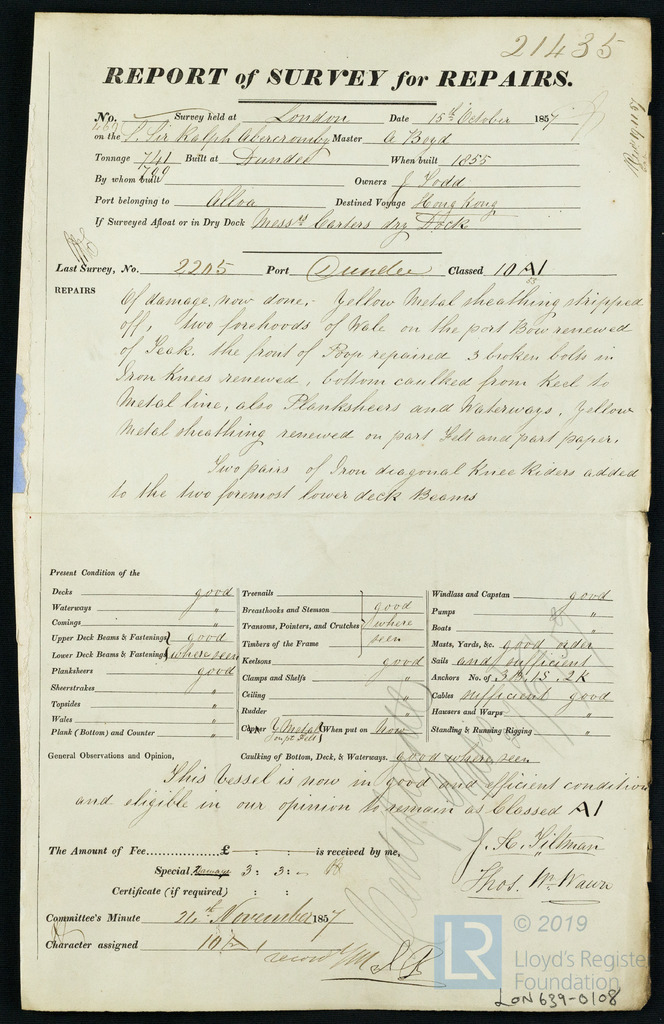 21435
REPORT of SURVEY for REPAIRS.
No. Survey held at London Date 15th October 1857
on the S. Sir Ralph Abercromby Master A Boyd
Tonnage 741 Built at Dundee When built 1855
790
By whom built Owners J Todd
Port belonging to Alloa Destined Voyage Hong Kong
If Surveyed Afloat or in Dry Dock Messrs Carters dry Dock
Last Survey, No. 2205 Port Dundee Classed 10 A1
55
REPAIRS
Of damage now done,- Yellow Metal sheathing stripped
off, two forehoods of Wale on the port Bow renewed
of Teak. the front of Poop repaired 3 broken bolts in
Iron Knees renewed, bottom caulked from Keel to
Metal line, also Planksheers and Waterways, Yellow
Metal sheathing renewed on part Felt and part paper.
Two pairs of Iron diagonal Knee Riders added
to the two foremost lower deck Beams
Present Condition of the
Decks good
Waterways "
Comings "
Upper Deck Beams & Fastenings good
Lower Deck Beams & Fastenings where seen
Planksheers good
Sheerstrakes "
Topsides "
Wales "
Plank (Bottom) and Counter "
Treenails
Breasthooks and Stemson good
Transoms, Pointers, and Crutches where
Timbers of the Frame seen
Keelsons good
Clamps and Shelfs "
Ceiling "
Rudder "
Copper Y Metal on pt Felt When put on Now
Caulking of Bottom, Deck, & Waterways. good where seen
Windlass and Capstan good
Pumps "
Boats "
Masts, Yards, &c. good order
Sails and sufficient
Anchors No. of 3B. 1S. 2K
Cables sufficient good
Hawsers and Warps "
Standing & Running Rigging "
General Observations and Opinion,
This Vessel is now in good and efficient condition
and eligible in our opinion to remain as Classed A1
The Amount of Fee £ - : - : - is received by me,
Special Damage 3 : 3 : -
Certificate (if required) : :
J. H. Tiltman
Thos. Wm Wawn
Committee's Minute 24th November 1857
Character assigned 10 A 1
© 2019
LR
Lloyd's Register
Foundation
LON639-0108